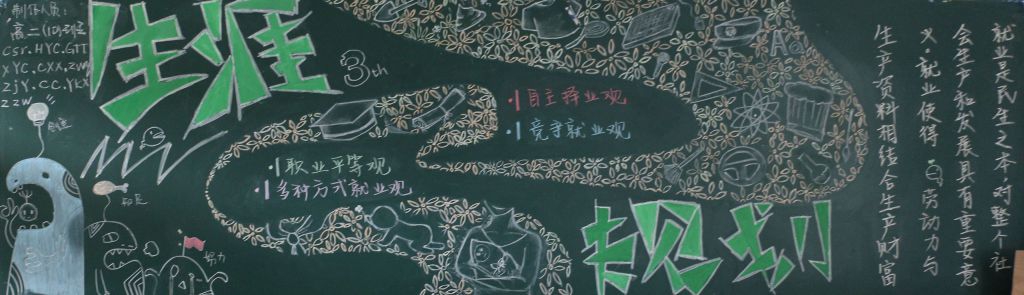 制作人员:
高二(10)班
csr.HYC.GTT
XYC.CXX.ZWM
ZJY.CC.YKX
ZZW
生涯
3th
创造
职业平等观
多种方式就业观
自主择业观
竞争就业观
规划
努力
Aa
就业是民生之本,对整个社
会生产和发展具有重要意
义.就业使得.劳动力与
生产资料相结合生产财富